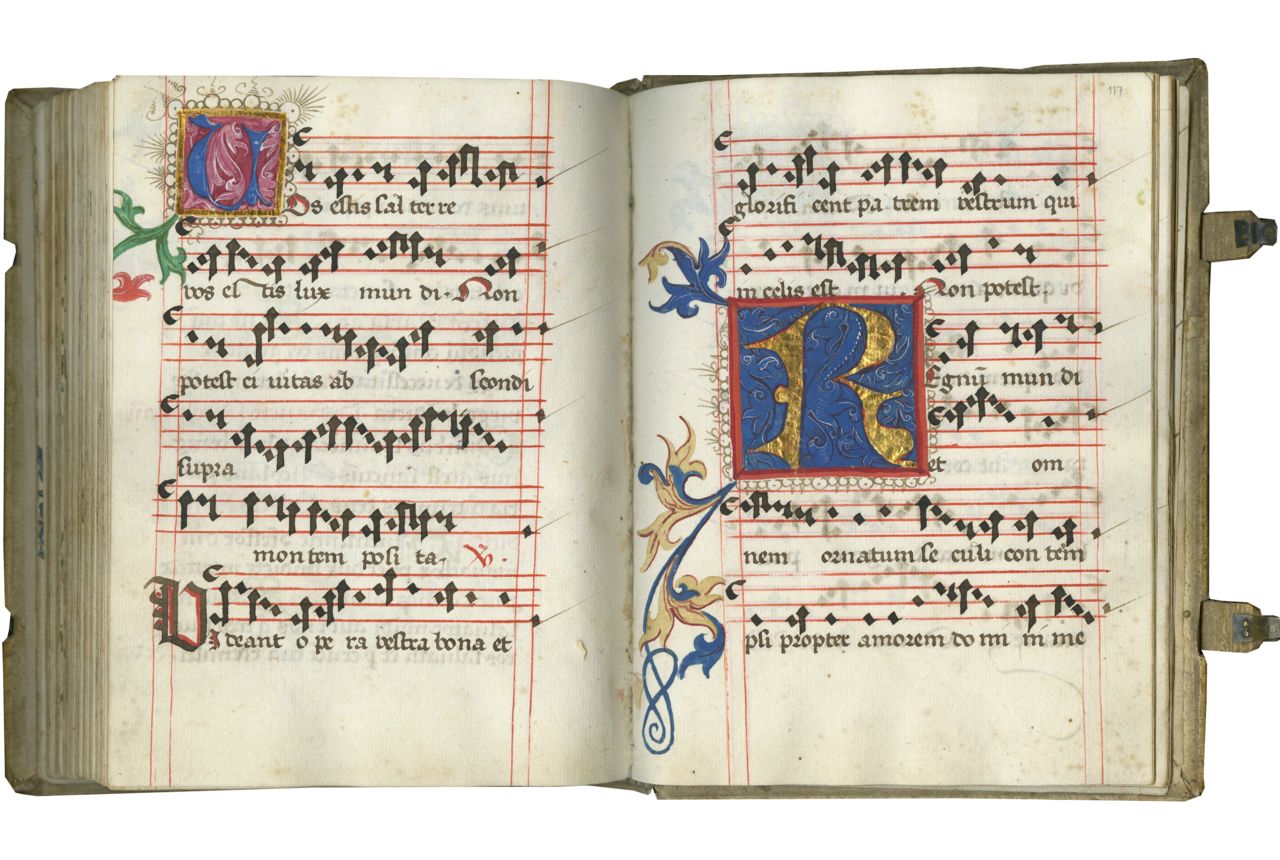 Vos estis sal terre
vos es tis lux mun di. Non
potest ci vitas ab scondi
supra
montem posi ta,
Videant o pe ra vestra bona et
117
glorifi cent pa trem vestrum qui
in celis est Non potest
Regnū mun di
et om
nem ornatum se culi con tem
psi propter amorem do mi ni me